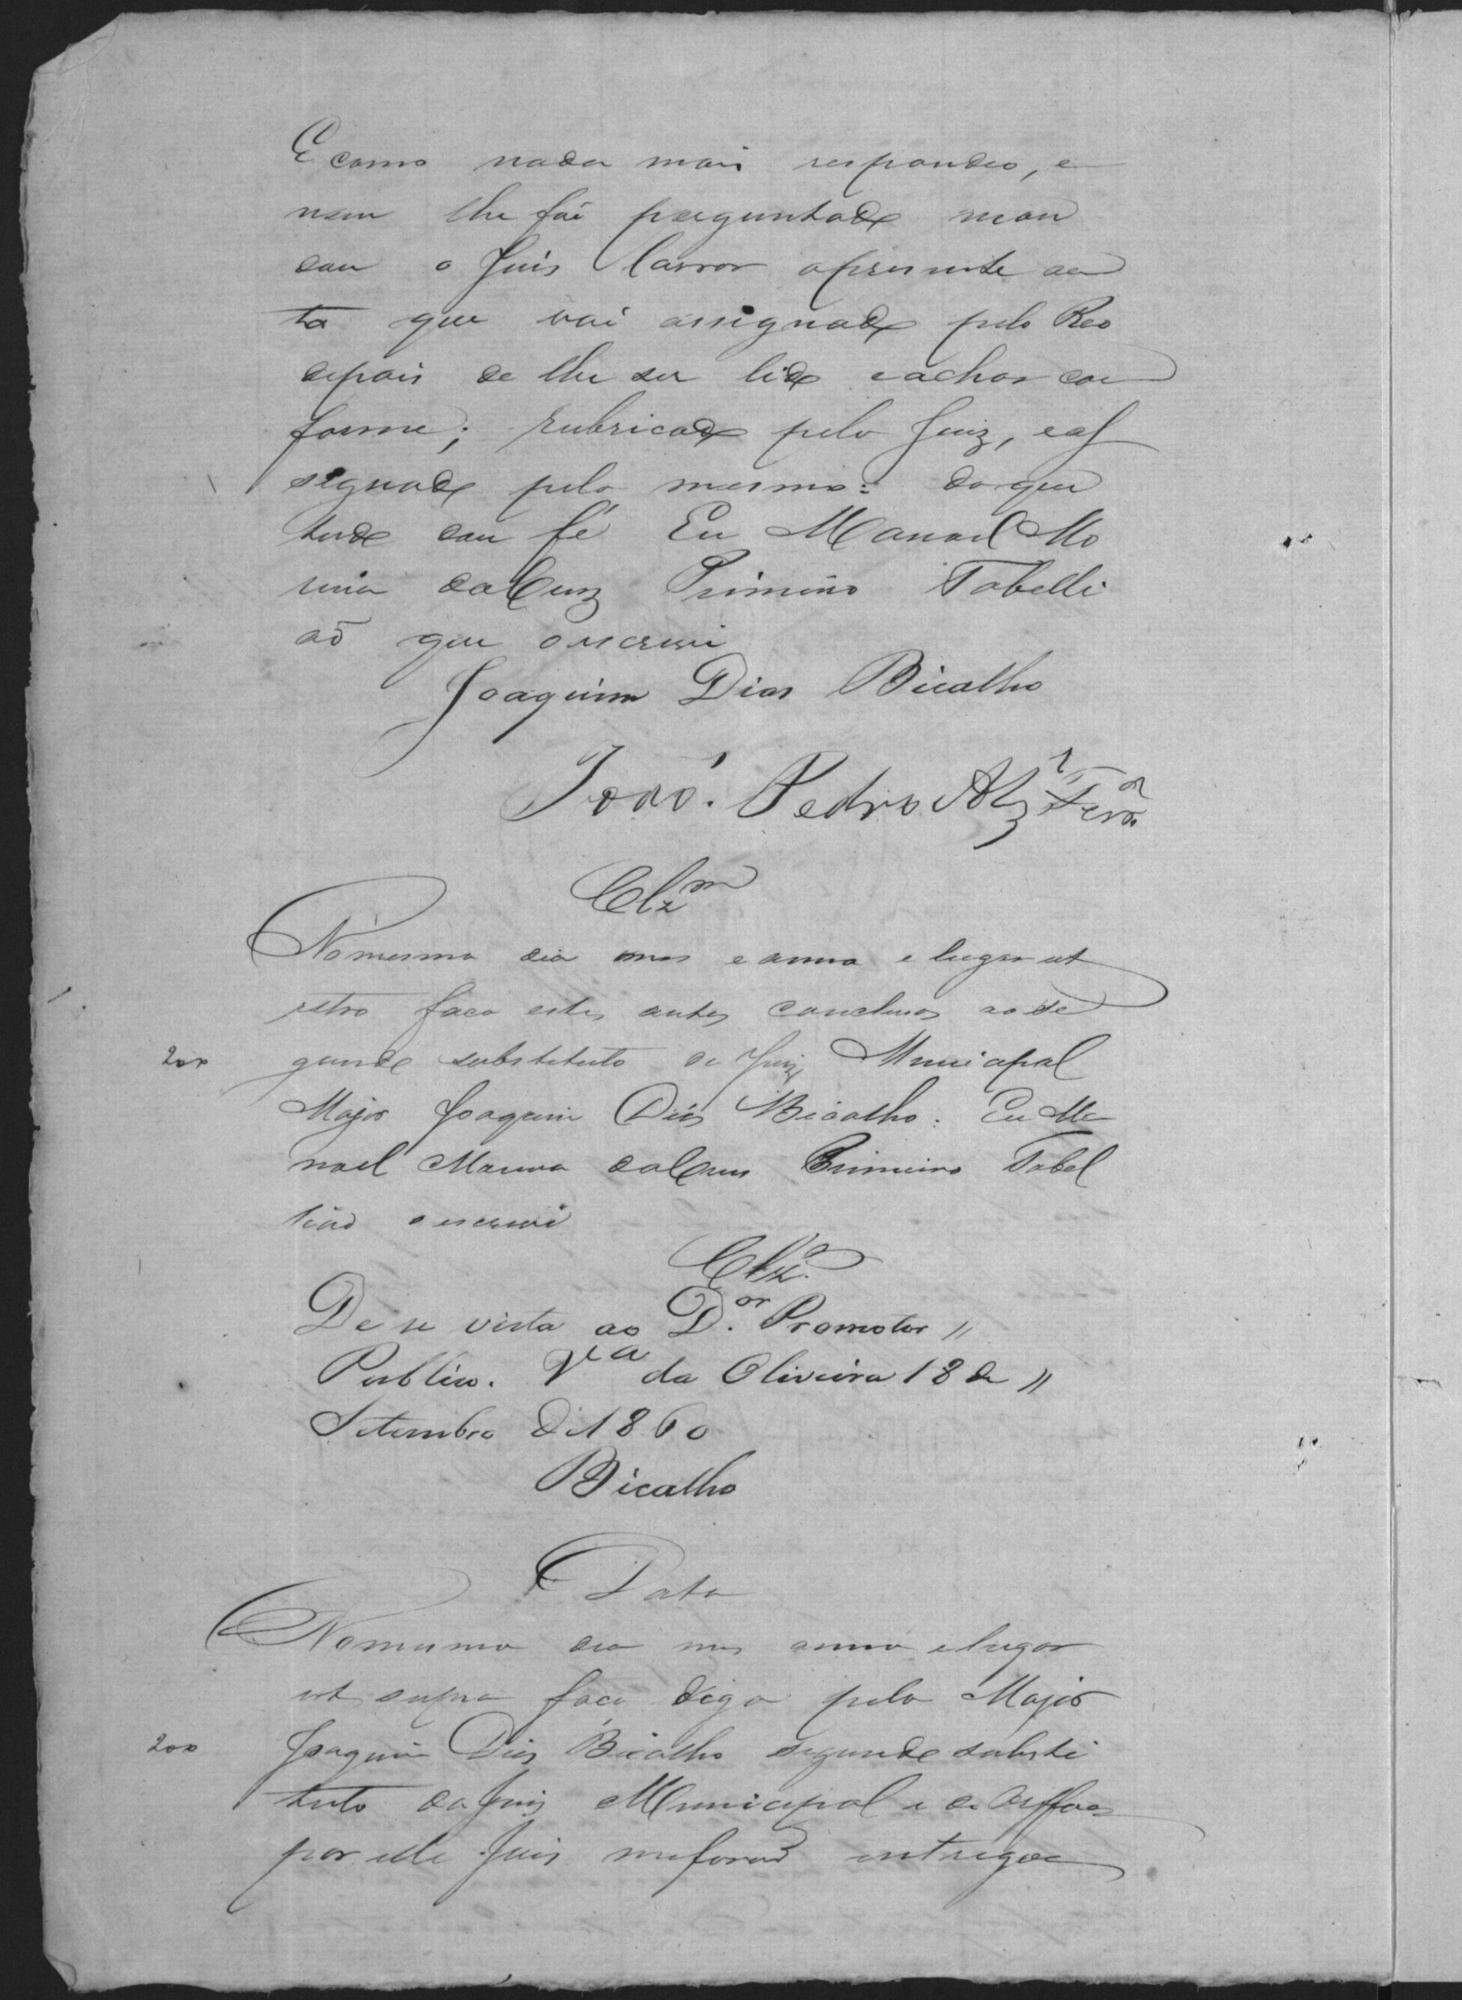 E como nada mais respondeo, e
nem lhe foi perguntado man
dou o Juis lavrar opresente au
to que vai assignado pelo Reo
depois de lhe ser lido eachar con
forme; rubricado pelo Juiz, eas
signado pelo mesmo: do que
tudo dou fé Eu Manoel Mo
reira daCruz Primeiro Tabelli
aõ que oescrevi
Joaquim Dias Bicalho
Joaõ. Pedro Alz Ferr.ª
Clzm
Nomesmo dia mes eanno elugar ut
retro faco estes autos conclusos aose
200 gundo substituto do Juiz Municipal
Major Joaquim Dias Bicalho. Eu Ma
noel Moreira daCruz Primeiro Tabel
lião oescrevi
Clz.º
De se vista ao D.or Promotor //
Publico. Vª da Oliveira 18 de //
Setembro de 1860
Bicalho
Data
Nomesmo dia mes anno elugar
ut supra faco digo pelo Major
200 Joaquim Dias Bicalho segundo substi
tuto do Juis Municipal e de Orffaos
por elle Juis meforaõ entregues